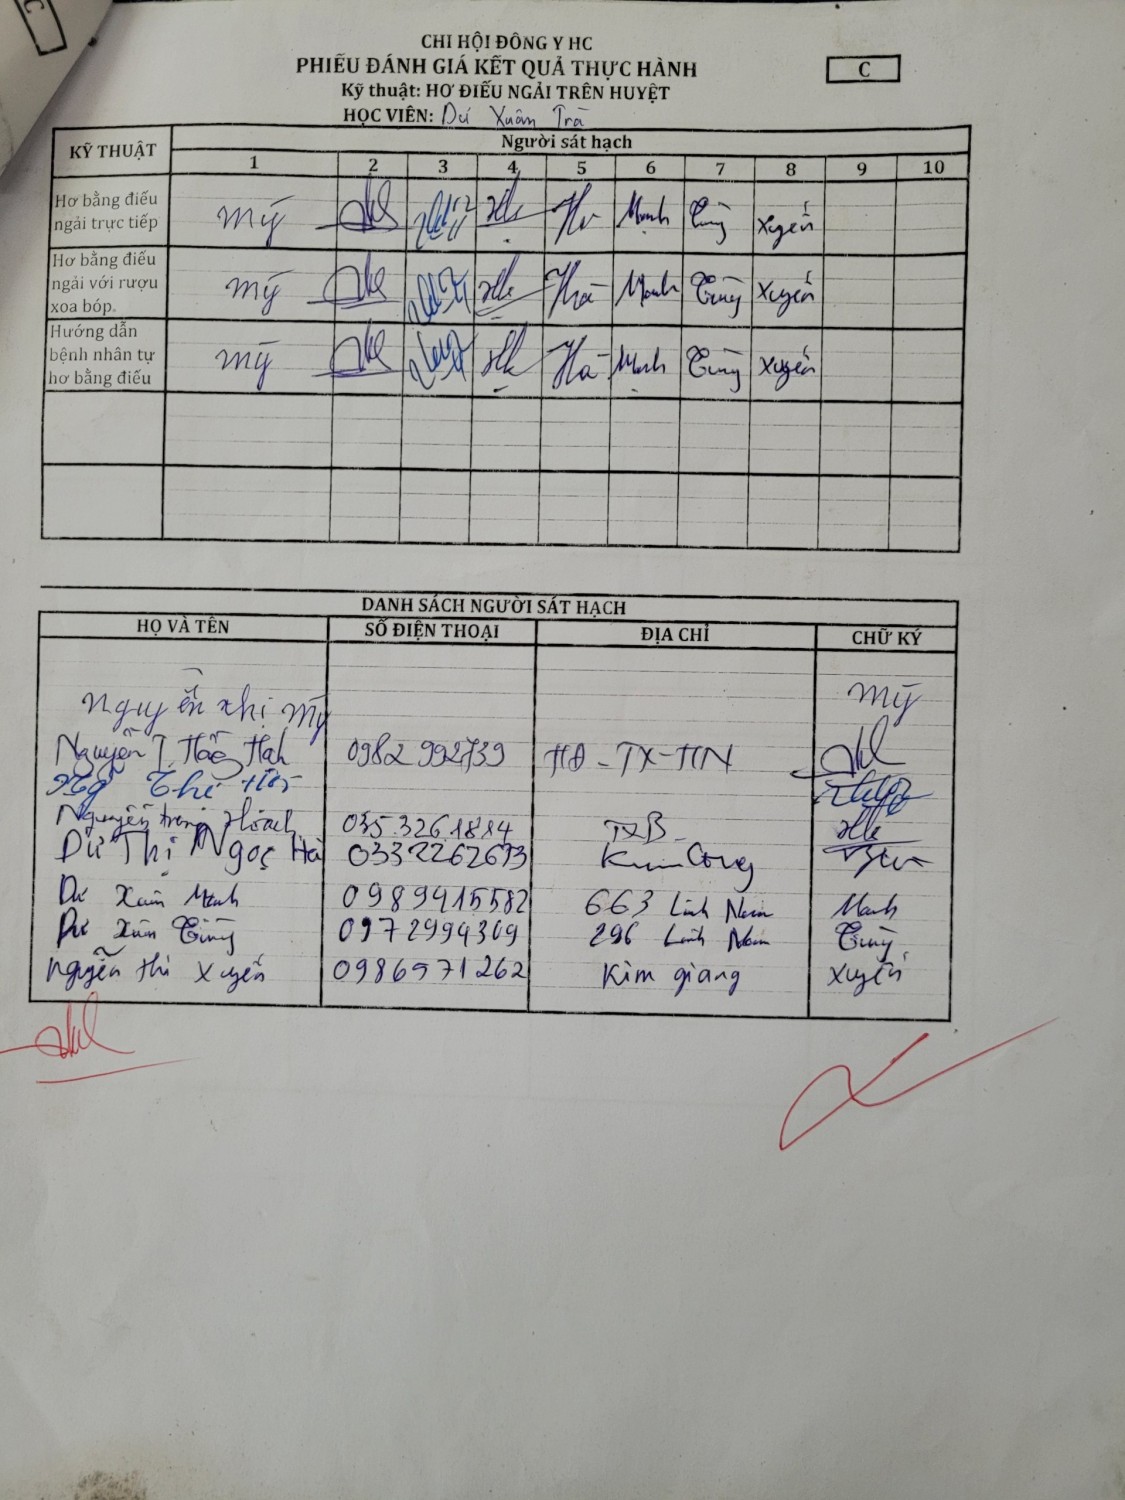 C
CHI HỘI ĐÔNG Y HC
PHIẾU ĐÁNH GIÁ KẾT QUẢ THỰC HÀNH
C
Kỹ thuật: HƠ ĐIẾU NGẢI TRÊN HUYỆT
HỌC VIÊN: Dư Xuân Trà
KỸ THUẬT
Người sát hạch
1 2 3 4 5 6 7 8 9 10
Hơ bằng điếu
ngải trực tiếp
Mỹ Mạnh Tùng Xuyến
Hơ bằng điếu
ngải với rượu
xoa bóp.
Mỹ Hà Mạnh Tùng Xuyến
Hướng dẫn
bệnh nhân tự
hơ bằng điếu
Mỹ Hà Mạnh Tùng Xuyến
DANH SÁCH NGƯỜI SÁT HẠCH
HỌ VÀ TÊN SỐ ĐIỆN THOẠI ĐỊA CHỈ CHỮ KÝ
Nguyễn Thị Mỹ Mỹ
Nguyễn T. Hồng Hạnh 0982 992739 HĐ - TX - HN
Thị
Nguyễn trọng 035.3261814 TXB
Dư Thị Ngọc Hà 0332262673
Dư Xuân Mạnh 0989415582 663 Lĩnh Nam Mạnh
Dư Xuân Tùng 0972994309 296 Lĩnh Nam Tùng
Nguyễn thị Xuyến 0986971262 Kim giang Xuyến